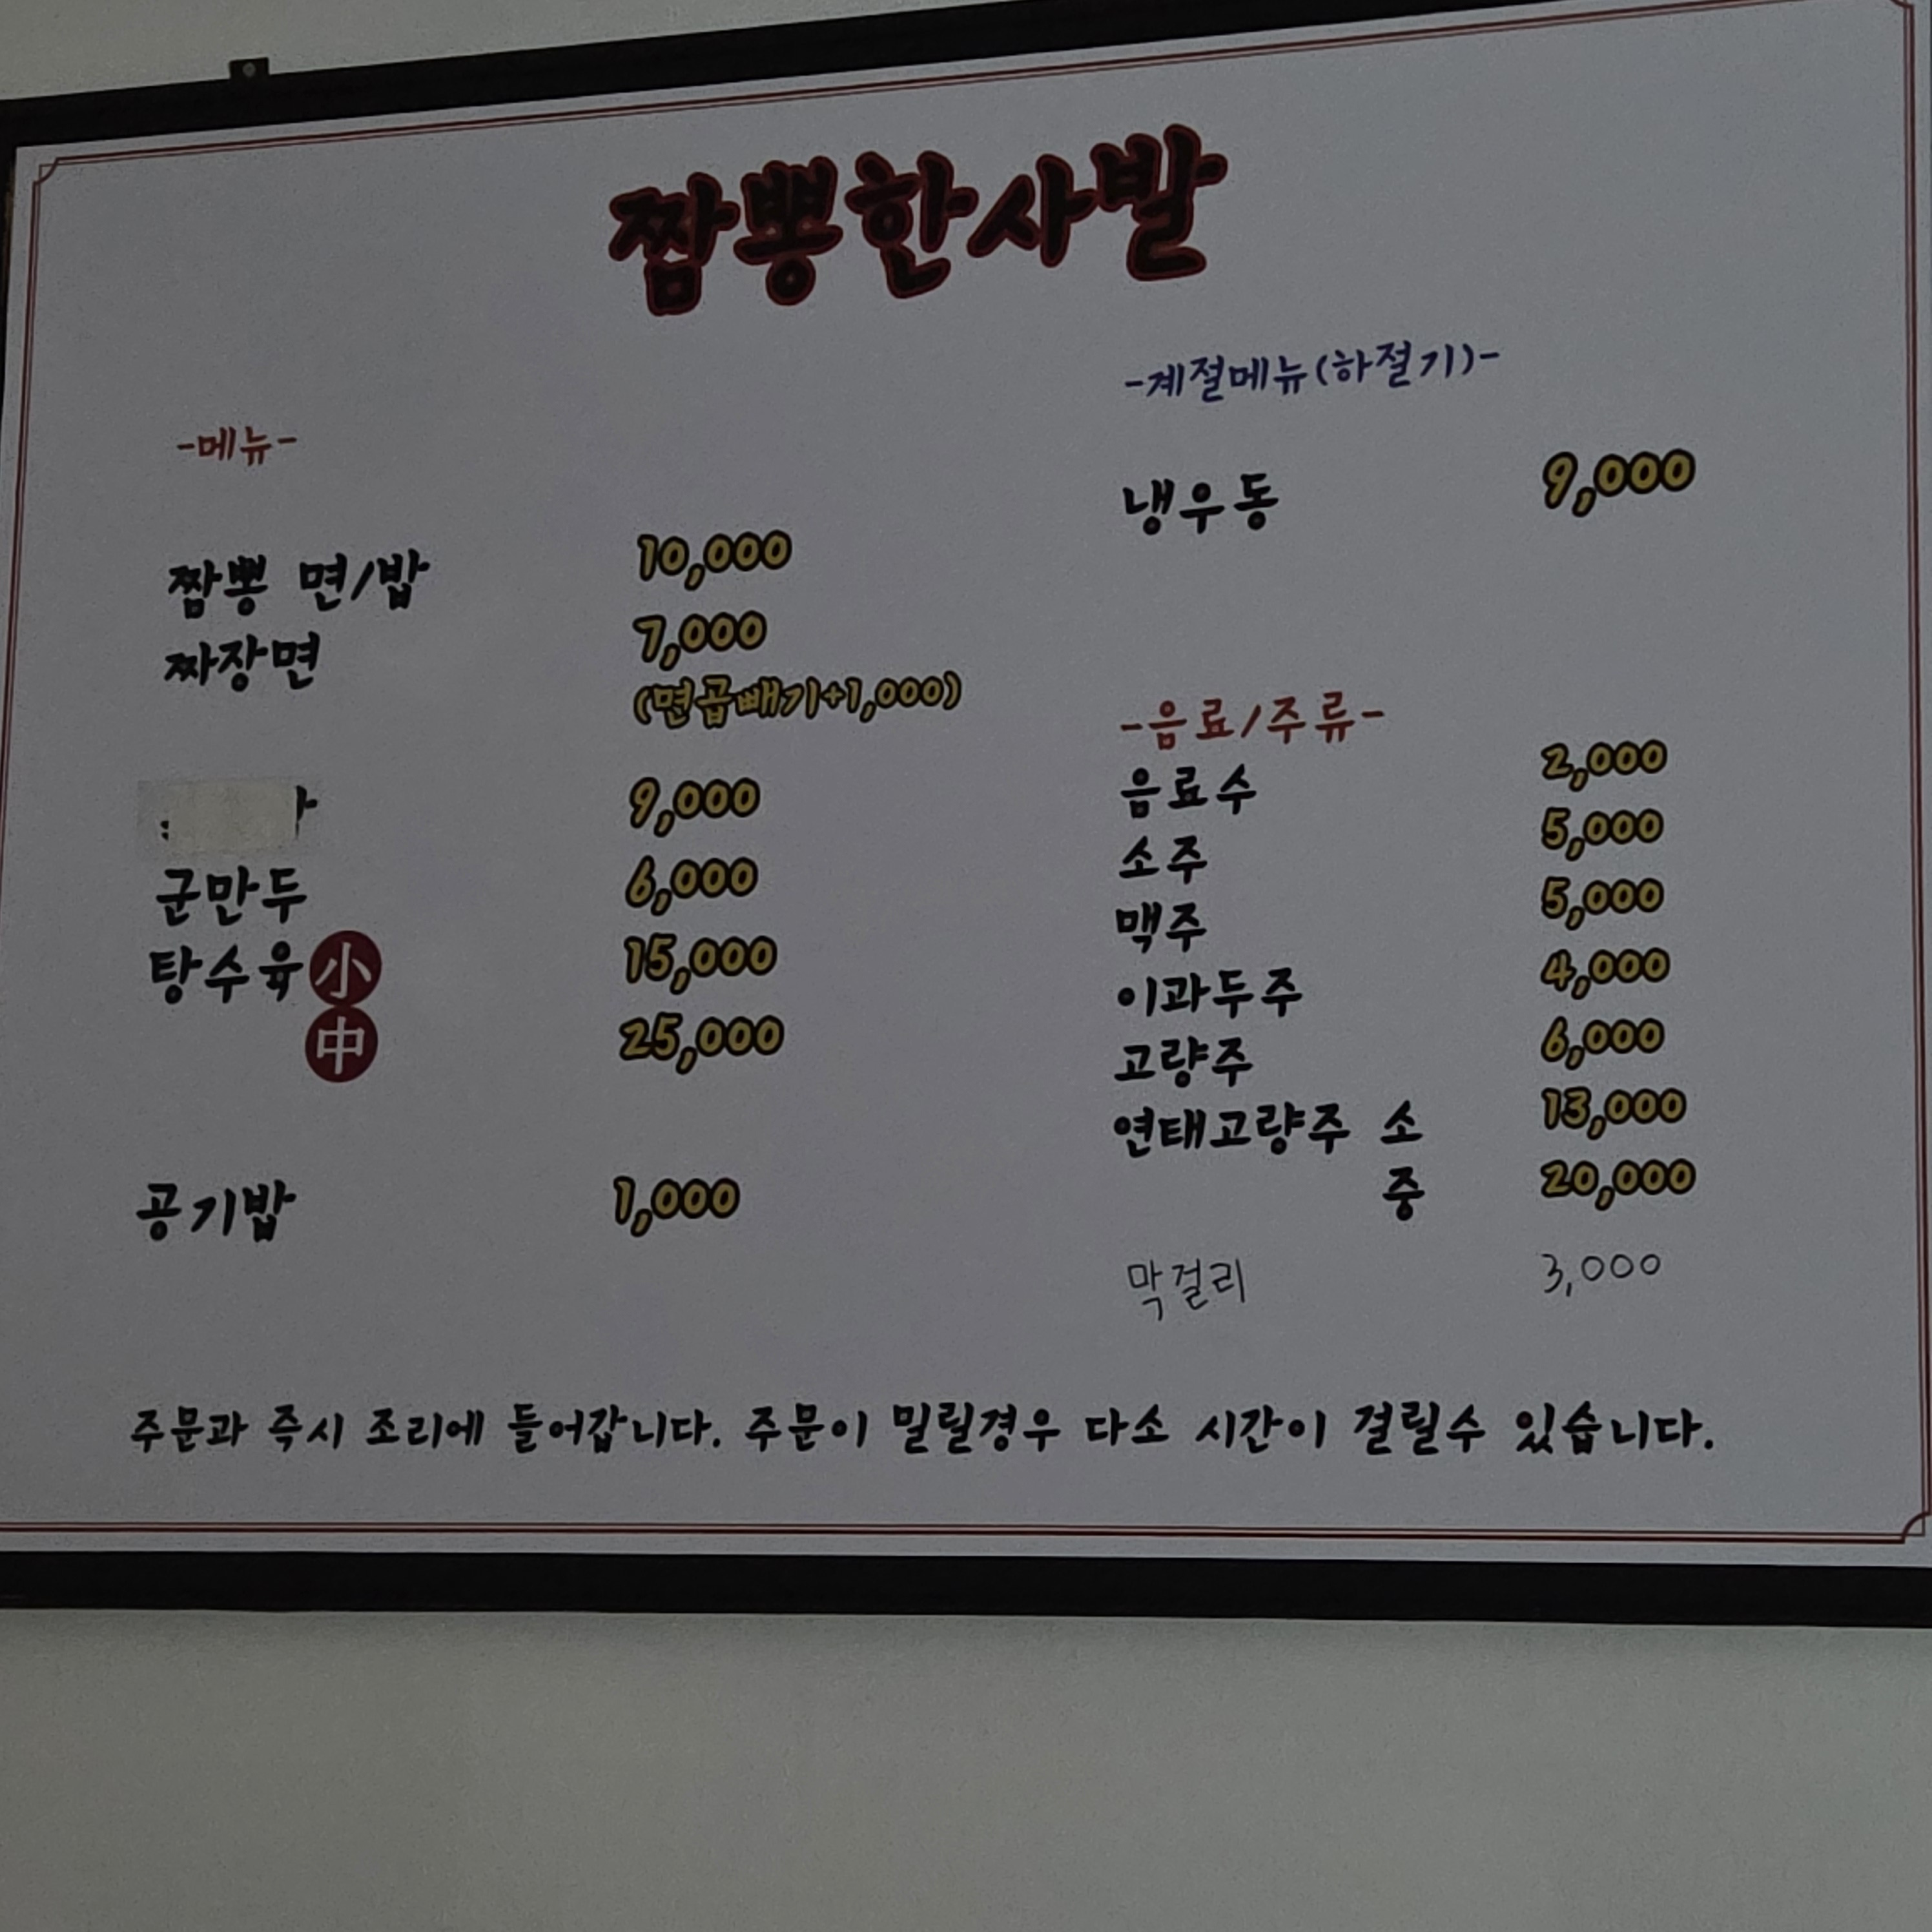 짬뽕한사발
-메뉴-
짬뽕 면/밥 10,000
짜장면 7,000
(면곱빼기+1,000)
9,000
군만두 6,000
탕수육 小 15,000
中 25,000
공기밥 1,000
-계절메뉴(하절기)-
냉우동 9,000
-음료/주류-
음료수 2,000
소주 5,000
맥주 5,000
이과두주 4,000
고량주 6,000
연태고량주 소 13,000
중 20,000
막걸리 3,000
주문과 즉시 조리에 들어갑니다. 주문이 밀릴경우 다소 시간이 걸릴수 있습니다.